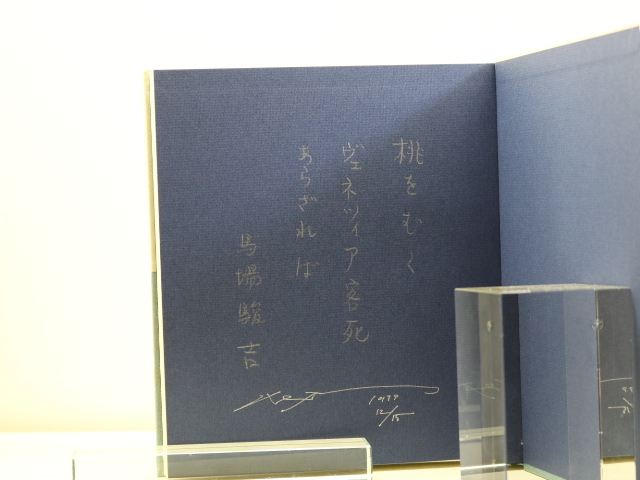 桃をむく
ヴェネツィア客死
あらざれば
馬場駿吉
1977
12/15